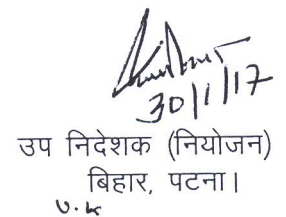 30/1/17
उप निदेशक (नियोजन)
बिहार, पटना।